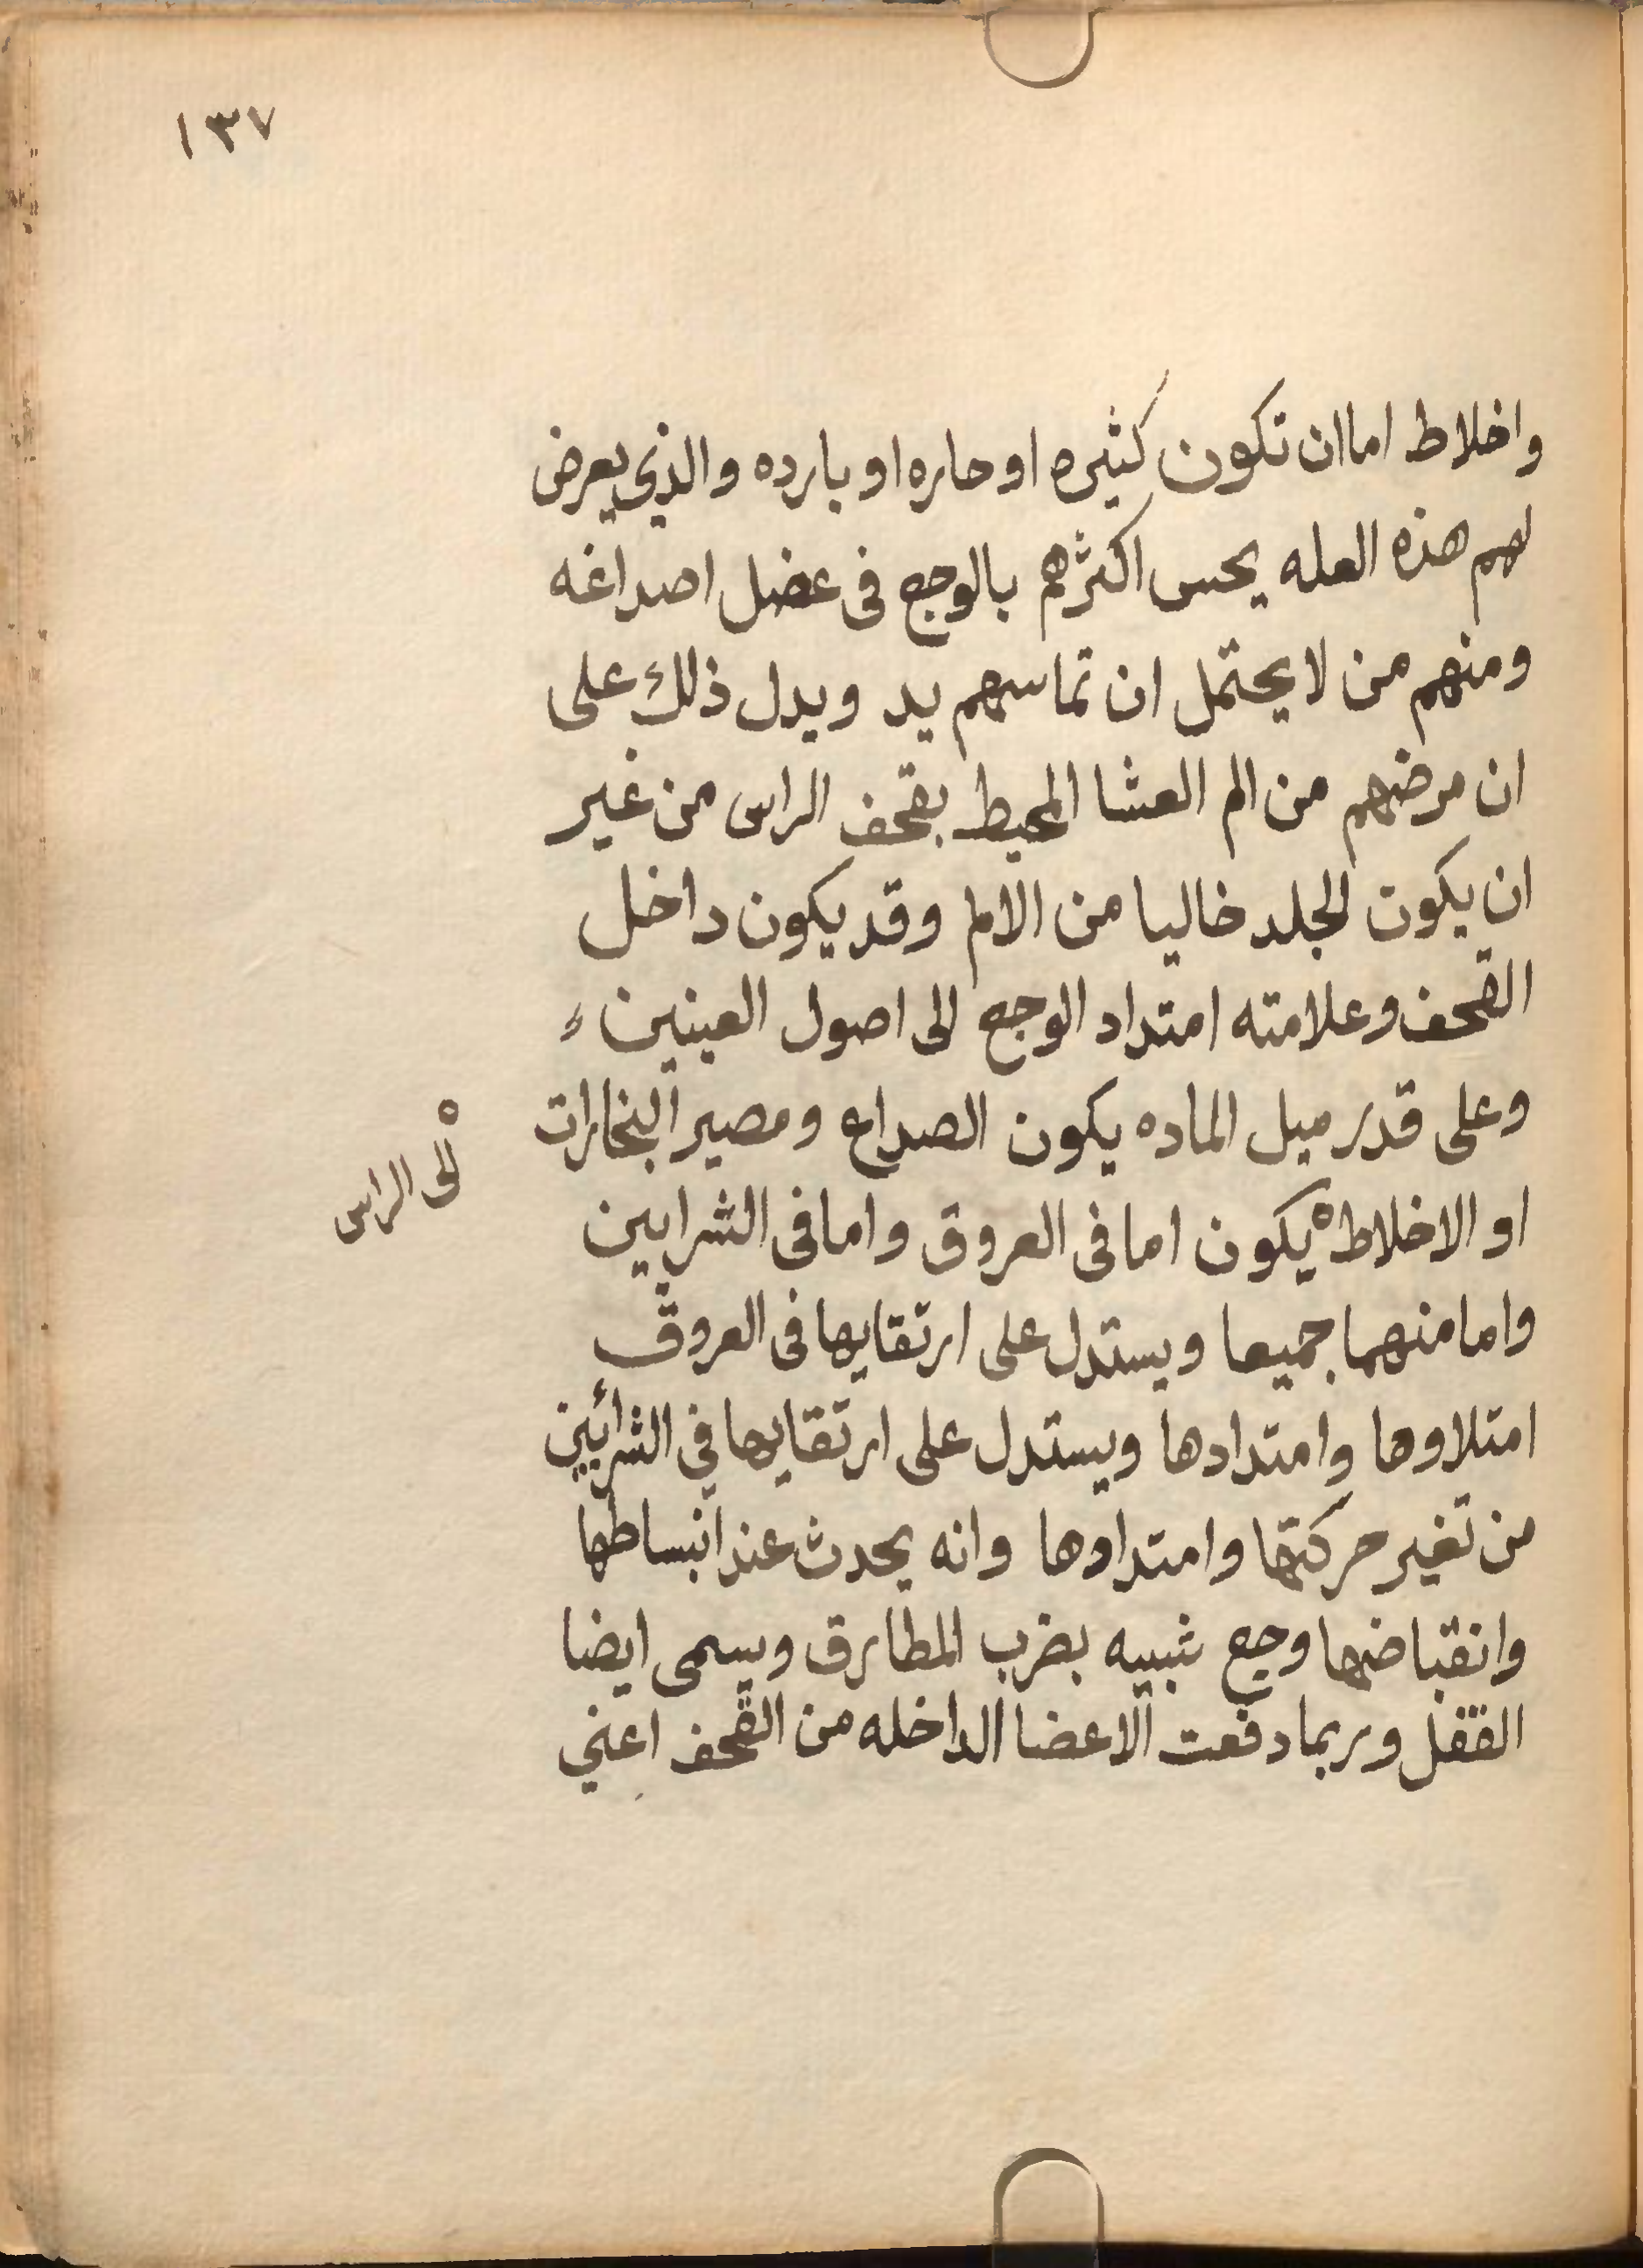 ١٣٧
واخلاط اما ان تكون كثيره او حاره او بارده والذي يعرض
لهم هذه العله يحس اكثرهم بالوجع فى عضل اصداغه
ومنهم من لا يحتمل ان تماسهم يد ويدل ذلك على
ان مرضهم من الم العشا المحيط بقحف الراس من غير
ان يكون الجلد خاليا من الالم وقد يكون داخل
القحف وعلامته امتداد الوجع الى اصول العينين
وعلى قدر ميل الماده يكون الصداع ومصير البخارات
او الاخلاط يكون اما فى العروق واما فى الشرايين
الى الراس
واما منهما جميعا ويستدل على ارتقايها فى العروق
امتلاوها وامتدادها ويستدل على ارتقايها في الشرائين
من تغير حركتها وامتداوها وانه يحدث عند انبساطها
وانقباضها وجع شبيه بضرب المطارق ويسمى ايضا
القفل وربما دفعت الاعضا الداخله من القحف اعني